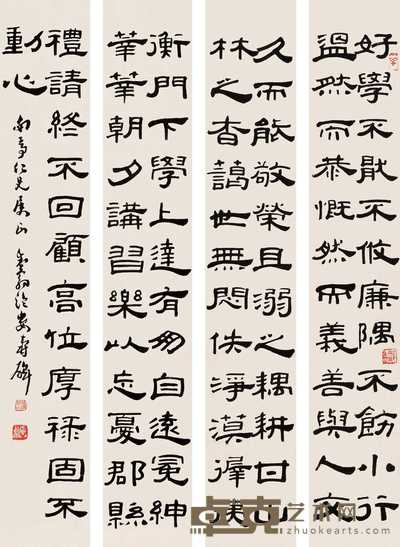 好學不猒不攸廉隅不飭小行
溫然而恭慨然而義善與人交
久而能敬榮且溺之耦耕甘山
林之杳藹世無悶佚淨漠徲徥
衡門下學上達有朋自遠冕紳
莘莘朝夕講習樂以忘憂郡縣
禮請終不回顧高位厚祿固不
動心
仁兄屬正 臨婁壽碑
卓克艺术网
www.zhuokearts.com